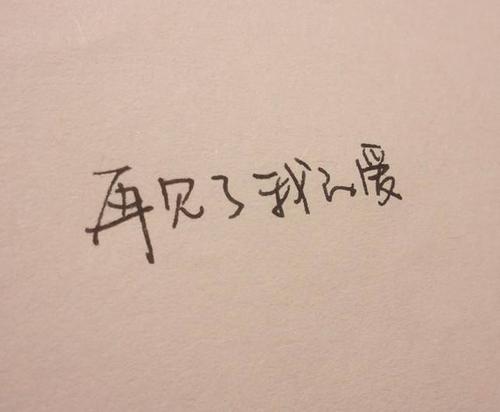 再见了我的爱